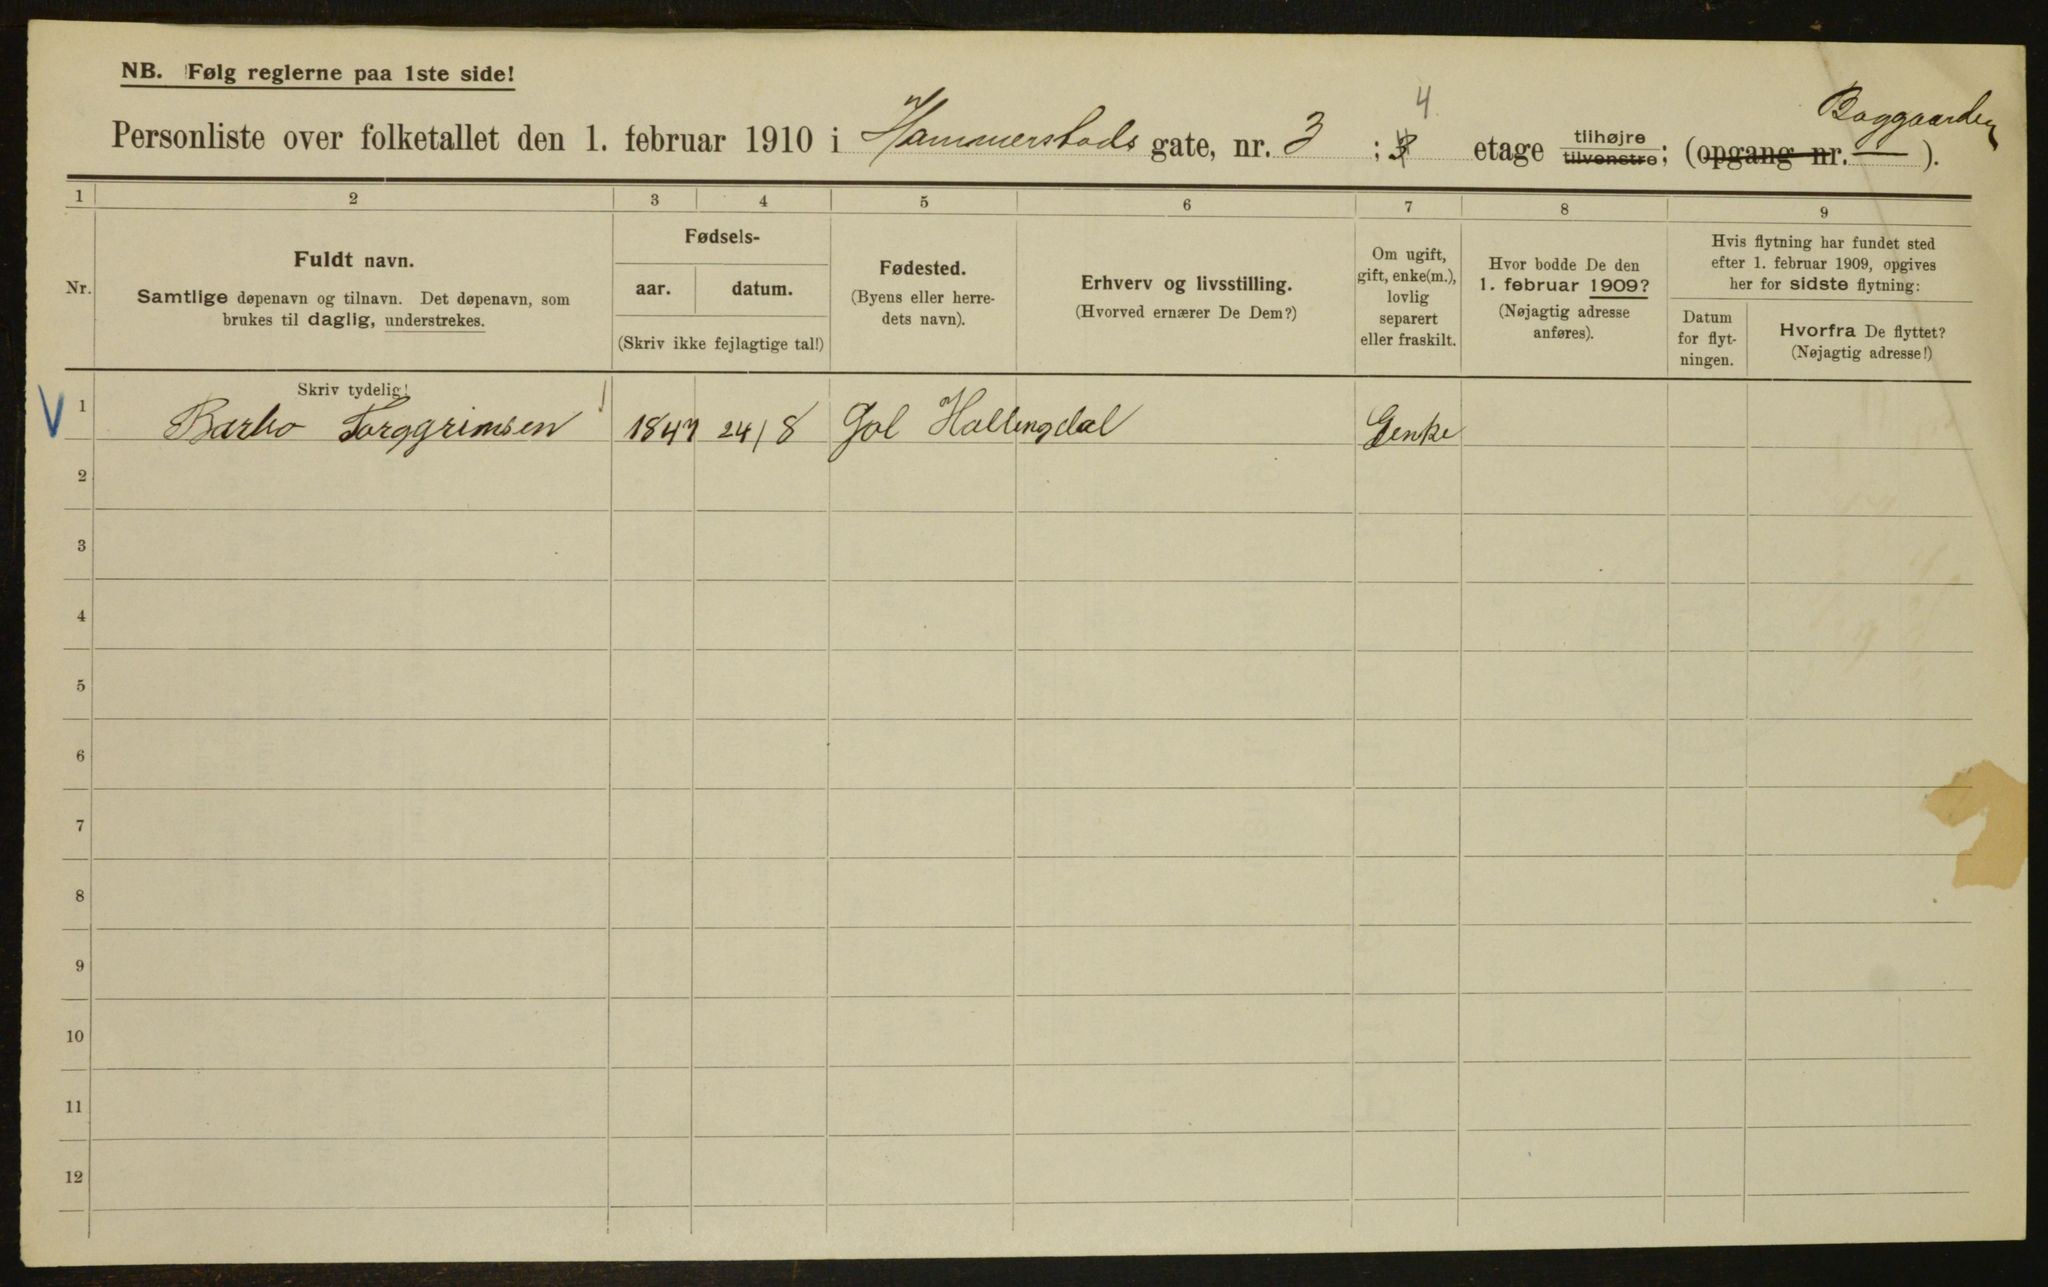 NB. Følg reglerne paa 1ste side!
4
Baggaarden
Personliste over folketallet den 1. februar 1910 i Hammerstads gate, nr. 3 ; etage tilhøjre tilvenstre; (opgang nr. — ).
1 2 3 4 5 6 7 8 9
Nr.
Fuldt navn.
Samtlige døpenavn og tilnavn. Det døpenavn, som
brukes til daglig, understrekes.
Fødsels-
aar. datum.
(Skriv ikke fejlagtige tal!)
Fødested.
(Byens eller herre-
dets navn).
Erhverv og livsstilling.
(Hvorved ernærer De Dem?)
Om ugift,
gift, enke(m.),
lovlig
separert
eller fraskilt.
Hvor bodde De den
1. februar 1909?
(Nøjagtig adresse
anføres).
Hvis flytning har fundet sted
efter 1. februar 1909, opgives
her for sidste flytning:
Datum
for flyt-
ningen.
Hvorfra De flyttet?
(Nøjagtig adresse!)
Skriv tydelig!
V 1 Barbo Torggrimsen 1847 24/8 Gol Hallingdal Enke
2
3
4
5
6
7
8
9
10
11
12